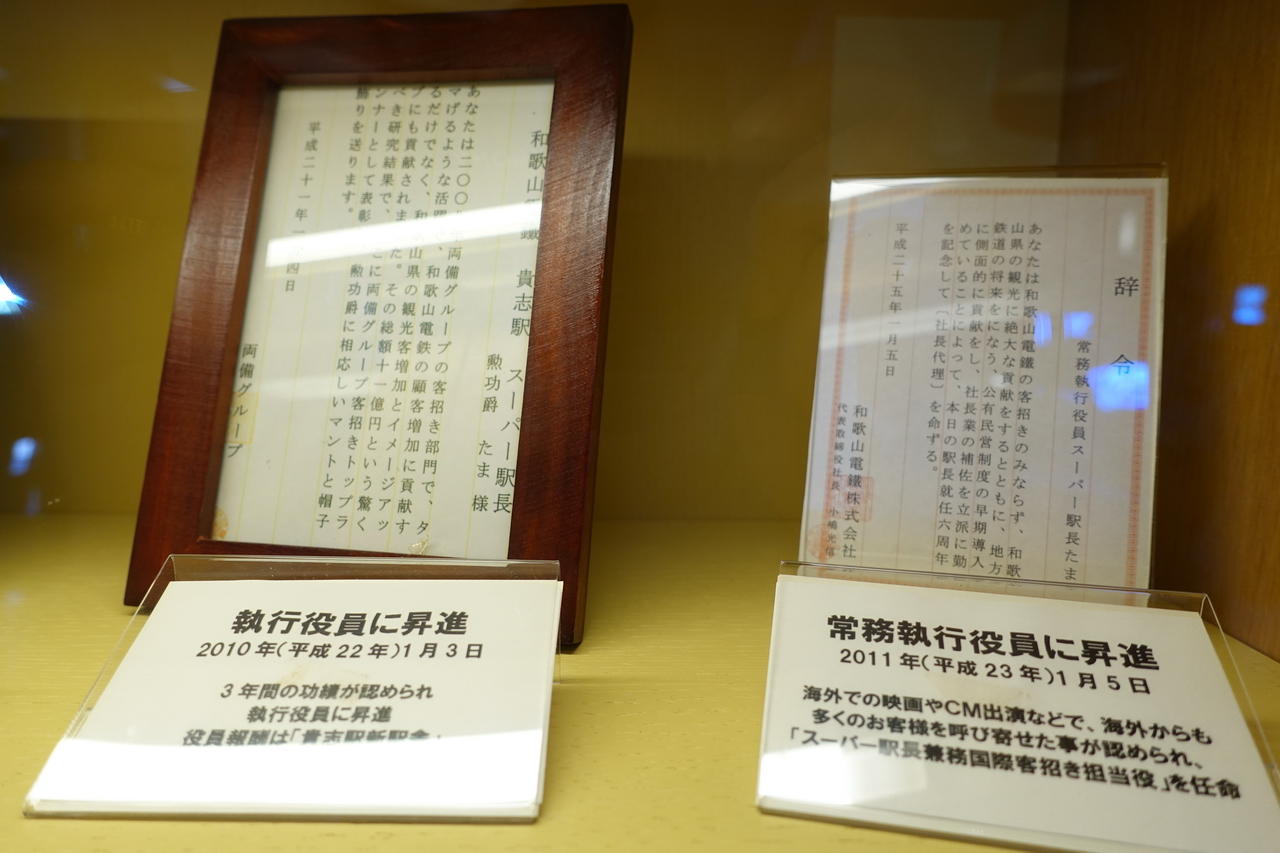 和歌山電鐵 貴志駅 スーパー駅長
勲功爵 たま 様
あなたは二〇〇 両備グループの客招き部門で、タ
マげるような活躍で、和歌山電鉄の顧客増加に貢献す
るだけでなく、和歌山県の観光客増加とイメージアッ
プにも貢献されました。その総額十一億円という驚く
べき研究結果で、ここに両備グループ客招きトップラ
ンナーとして表彰 勲功爵に相応しいマントと帽子
飾りを送ります。
平成二十一年一月四日
両備グループ
執行役員に昇進
2010年(平成22年)1月3日
3年間の功績が認められ
執行役員に昇進
役員報酬は「貴志駅新駅舎」
辞令
常務執行役員スーパー駅長たま
あなたは和歌山電鐵の客招きのみならず、和歌
山県の観光に絶大な貢献をするとともに、地方
鉄道の将来をになう、公有民営制度の早期導入
に側面的に貢献をし、社長業の補佐を立派に勤
めていることによって、本日の駅長就任六周年
を記念して〔社長代理〕を命ずる。
平成二十五年一月五日
和歌山電鐵株式会社
代表取締役社長 小嶋光信
常務執行役員に昇進
2011年(平成23年)1月5日
海外での映画やCM出演などで、海外からも
多くのお客様を呼び寄せた事が認められ、
「スーパー駅長兼務国際客招き担当役」を任命